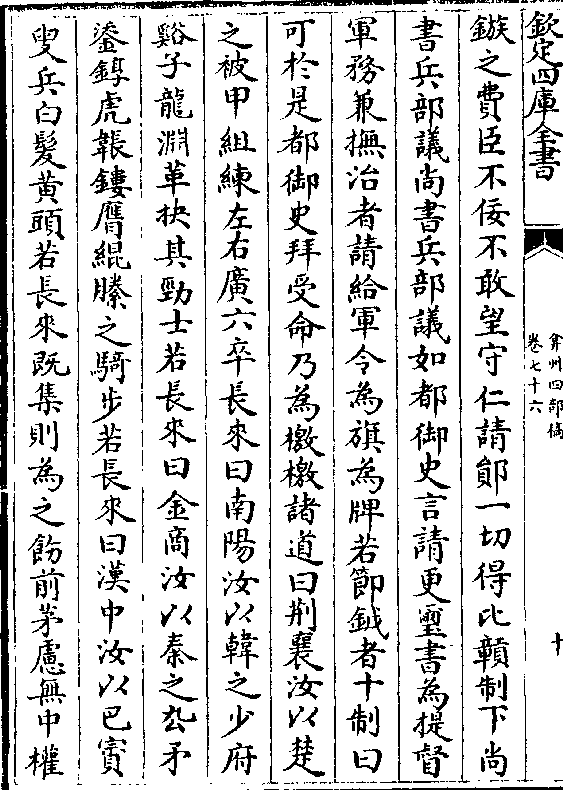 欽定四庫全書
弇州四部稿
卷七十六
十
鏃之費臣不佞不敢望守仁請鄖一切得比贑制下尚
書兵部議尚書兵部議如都御史言請更璽書為提督
軍務兼撫治者請給軍令為旗為牌若節鉞者十制曰
可於是都御史拜受命乃為檄檄諸道曰荆襄汝以楚
之被甲組練左右廣六卒長來曰南陽汝以韓之少府
谿子龍淵革抉其勁士若長來曰金商汝以秦之厹矛
鋈錞虎韔鏤膺緄縢之騎步若長來曰漢中汝以巴賨
叟兵白髮黄頭若長來既集則為之飭前茅慮無中權